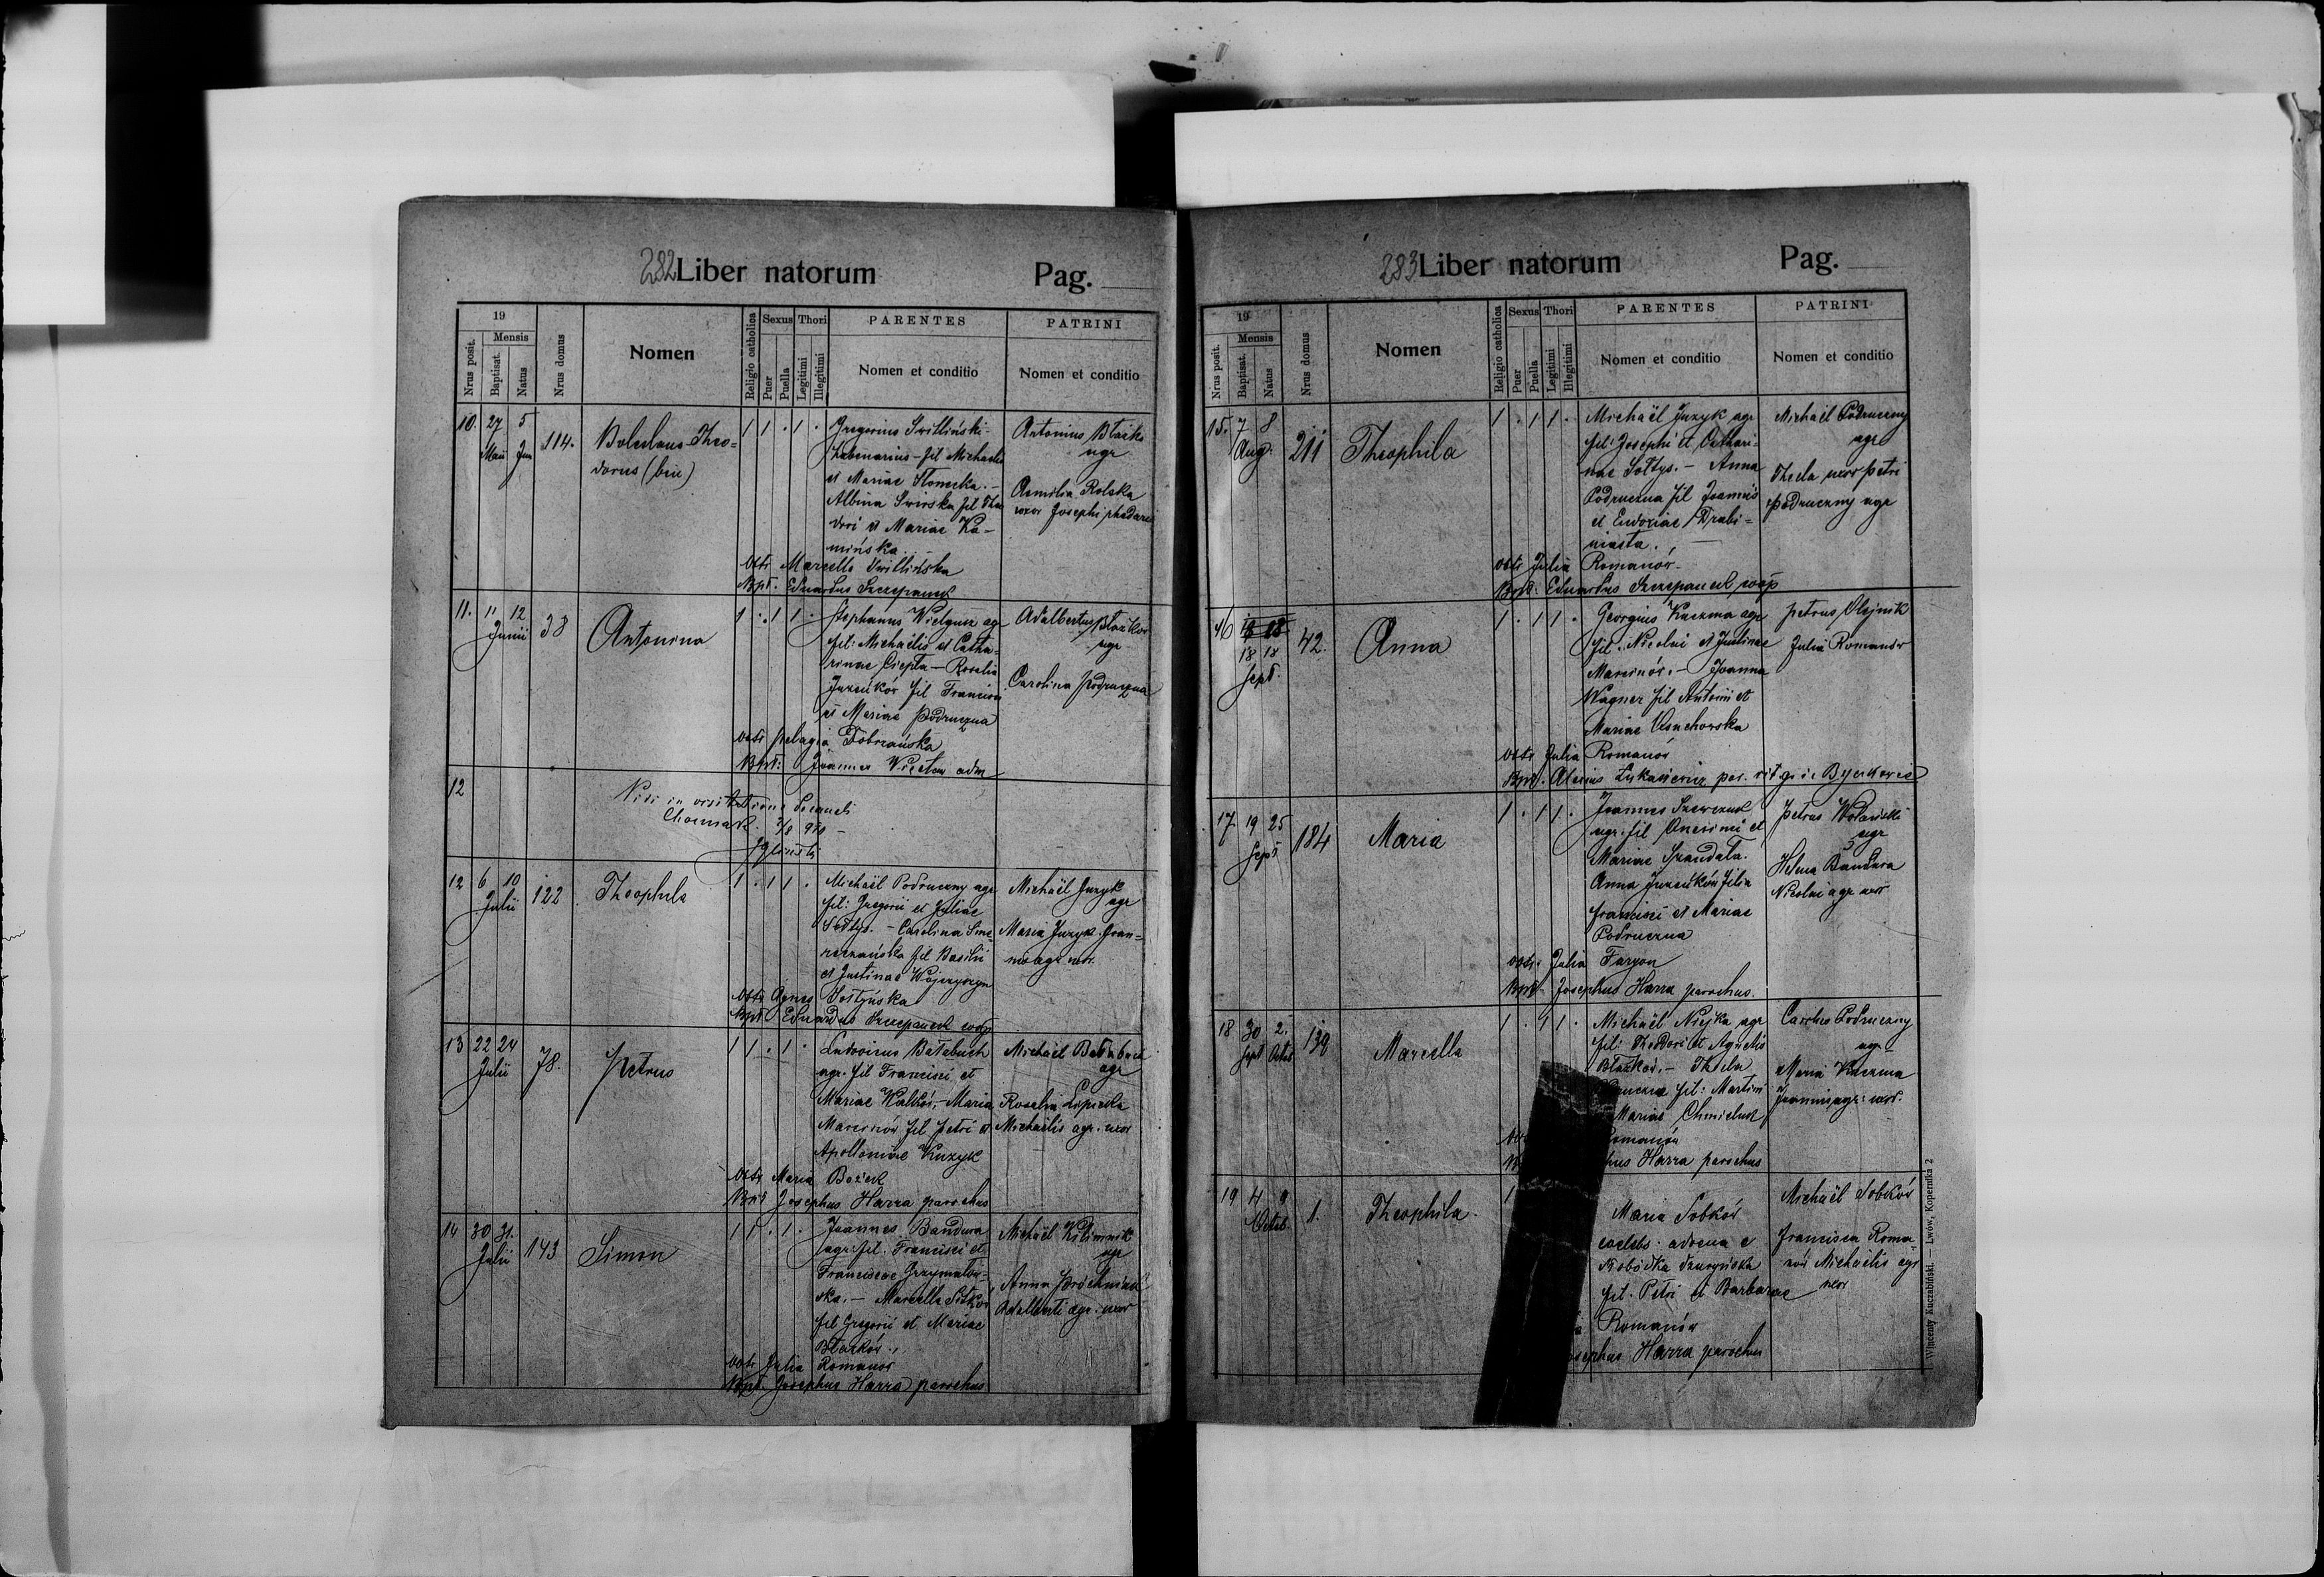 282 Liber natorum Pag.
19
Mensis
Nrus posit.
Baptisat.
Natus
Nrus domus
Nomen
Religio catholica
Sexus
Puer
Puella
Thori
Legitimi
Illegitimi
PARENTES
Nomen et conditio
PATRINI
Nomen et conditio
10. 27 5 114.
Maii Jun
Boleslaus Theo=
dorus (bin)
1 1 . 1 .
Gregorius Świtliński
fil Michaelis
et Mariae Słonecka. —
Albina Swirska fil Theo
dori et Mariae Ka-
mińska. —
Obst. Marcella Świtlińska
Bpt. Eduardus Szczepanek
Antonius Błażków
agr
Aemilia Rolska
uxor Josephi
11. 11 12 38
Junii
Antonina
1 . 1 1 .
Stephanus Wielgusz agr
fil: Michaelis et Catha-
rinae Ciepła — Rosalia
Juzeńków fil Francisci
et Mariae Podruczna
Obst Pelagia Dobrzańska
Bpt: Joannes adm
Adalbertus Błażków
agr
Carolina Podruczna
12
Visi in visitatione Decanali
2/8 910 —
12 6 10 122
Julii
Theophila
1 . 1 1 .
Michaël Podruczny agr
fil: Gregorii et Juliae
Sołtys. — Carolina
fil Basilii
et Justinae
Obst. Agnes
Bpt Eduardus Szczepanek coop
Michaël Juzyk
agr
Maria Juzyk Joan=
nis agr uxor
13 22 24 78.
Julii
Petrus
1 1 . 1 .
Ludovicus Bałabuch
agr. fil Francisci et
Mariae — Maria
Marcinów fil Petri et
Apolloniae Kuzyk
Obst Maria
Bpt Josephus Harra parochus
Michaël Bałabuch
agr
Rosalia
Michaelis agr. uxor
14 30 31. 143
Julii
Simon
1 1 . 1 .
Joannes Bandura
agr. fil. Francisci et
Franciscae Grzymałow-
ska. — Marcella
fil Gregorii et Mariae
Błażków.
Obst Julia Romanów
Bpt. Josephus Harra parochus
Michaël Klimnik
agr
Anna
Adalberti agr. uxor
283 Liber natorum Pag.
19
Mensis
Nrus posit.
Baptisat.
Natus
Nrus domus
Nomen
Religio catholica
Sexus
Puer
Puella
Thori
Legitimi
Illegitimi
PARENTES
Nomen et conditio
PATRINI
Nomen et conditio
15. 7 8 211
Aug.
Theophila
1 . 1 1 .
Michaël Juzyk agr
fil: Josephi et Cathari-
nae Sołtys. — Anna
Podruczna fil Joannis
et Eudoxiae Drabi=
niasta. —
Obst Julia Romanów
Bpt. Eduardus Szczepanek coop
Michaël Podruczny
agr
Thecla uxor Petri
Podruczny agr
16 18 18 42.
Sept.
Anna
1 . 1 1 .
Georgius Kuczma agr
fil. Nicolai et Justinae
Marcinów. — Joanna
Wagner fil Antonii et
Mariae
Obst Julia Romanów
Bpt. Alexius Łukasiewicz par. rit gr.
Petrus Olejnik
Julia Romanów
17 19 25 184
Sept
Maria
1 . 1 1 .
Joannes Szewczuk
agr. fil Onesimi et
Mariae
Anna Juzeńków filia
Francisci et Mariae
Podruczna
Obst. Julia Faryon
Bpt Josephus Harra parochus.
Petrus
agr
Helena Bandura
Nicolai agr uxor
18 30 2. 139
Sept Octob
Marcella
1 . 1 1 .
Michaël agr
fil: Theodori et Agnetis
Błażków. — Thecla
fil: Martini
Mariae Chmieluk
Romanów
Harra parochus
Carolus Podruczny
agr
Maria Kuczma
Joannis agr. uxor.
19 4 9 1.
Octob.
Theophila.
1
Maria Sobków
coelebs. advena e
fil. Petri et Barbarae
Romanów
Harra parochus
Michaël Sobków
Francisca Roma
nów Michaelis agr
uxor
Wincenty Kuczabiński. — Lwów, Kopernika 2